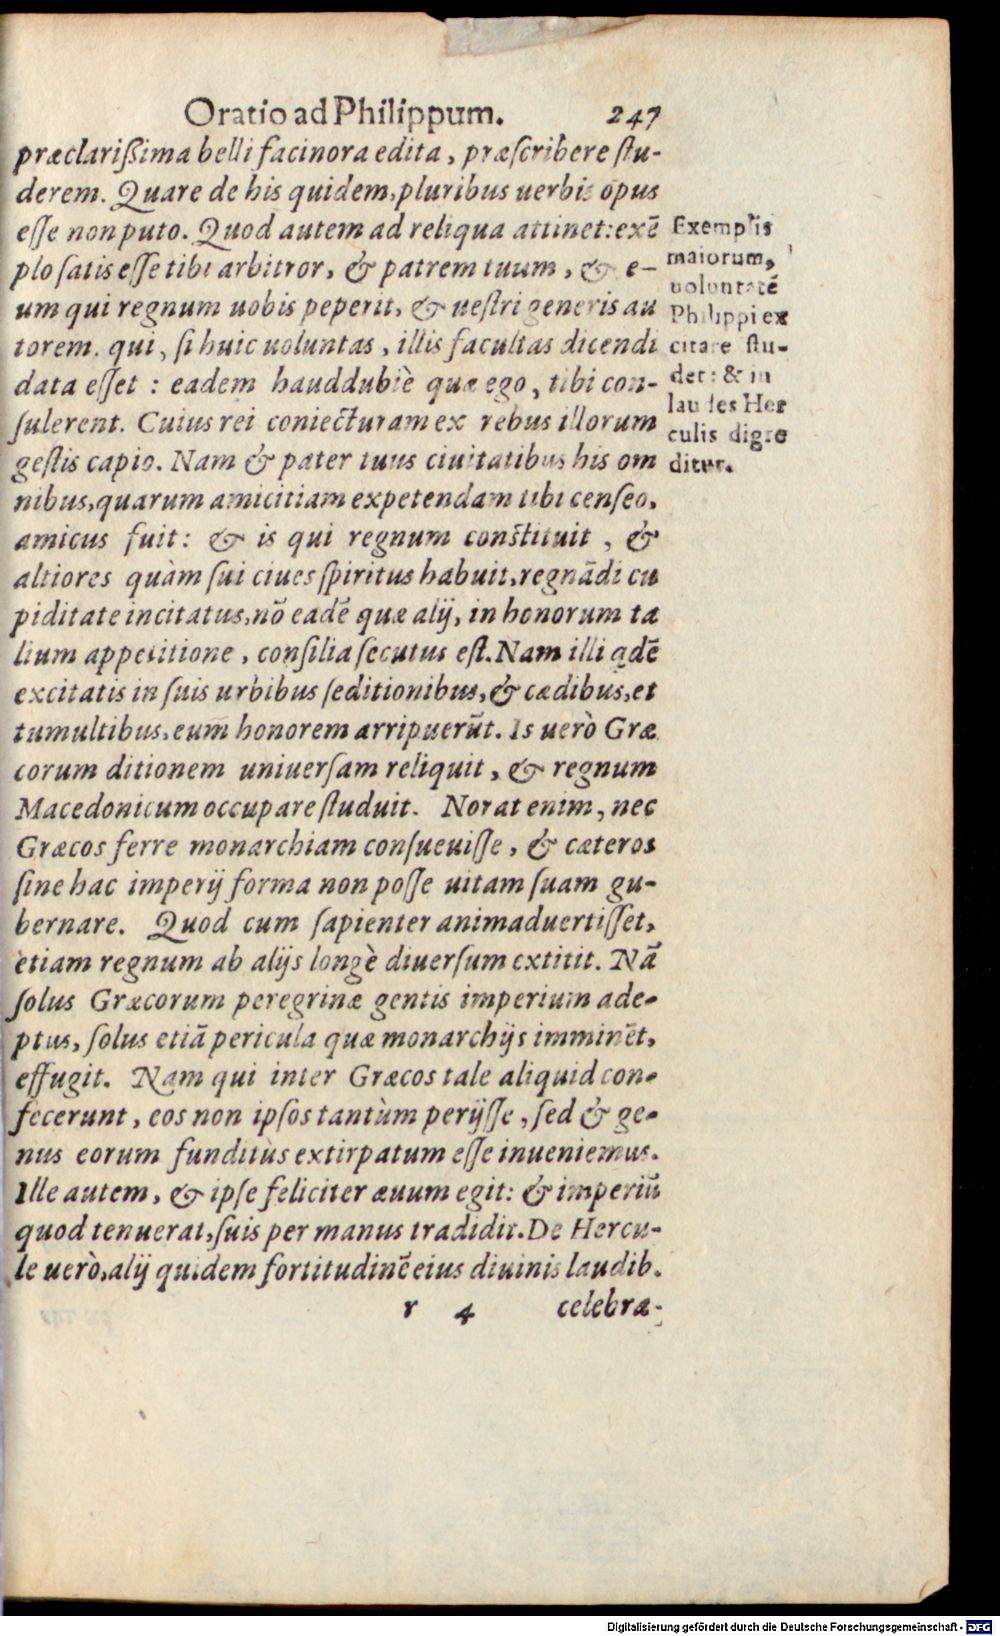 Oratio ad Philippum. 247
præclarißima belli facinora edita, præſcribere ſtu-
derem. Quare de his quidem, pluribus uerbis opus
eſſe non puto. Quod autem ad reliqua attinet: exē
plo ſatis eſſe tibi arbitror, & patrem tuum, & e-
um qui regnum uobis peperit, & ueſtri generis au
torem. qui, ſi huic uoluntas, illis facultas dicendi
data eſſet : eadem hauddubiè quæ ego, tibi con-
ſulerent. Cuius rei coniecturam ex rebus illorum
geſtis capio. Nam & pater tuus ciuitatibus his om
nibus, quarum amicitiam expetendam tibi cenſeo,
amicus fuit: & is qui regnum conſtituit, &
altiores quàm ſui ciues ſpiritus habuit, regnādi cu
piditate incitatus, nō eadē quæ alij, in honorum ta
lium appetitione, conſilia ſecutus eſt. Nam illi qdē
excitatis in ſuis urbibus ſeditionibus, & cædibus, et
tumultibus, eum honorem arripuerūt. Is uerò Græ
corum ditionem uniuerſam reliquit, & regnum
Macedonicum occupare ſtuduit. Norat enim, nec
Græcos ferre monarchiam conſueuiſſe, & cæteros
ſine hac imperij forma non poſſe uitam ſuam gu-
bernare. Quod cum ſapienter animaduertiſſet,
etiam regnum ab alijs longè diuerſum extitit. Nā
ſolus Græcorum peregrinæ gentis imperium ade-
ptus, ſolus etiā pericula quæ monarchijs imminēt,
effugit. Nam qui inter Græcos tale aliquid con-
fecerunt, eos non ipſos tantùm perijſſe, ſed & ge-
nus eorum funditùs extirpatum eſſe inueniemus.
Ille autem, & ipſe feliciter æuum egit: & imperiū
quod tenuerat, ſuis per manus tradidit. De Hercu-
le uerò, alij quidem fortitudinē eius diuinis laudib.
r 4 celebra-
Exemplis
maiorum,
uoluntatē
Philippi ex
citare ſtu-
det: & in
laudes Her
culis digre
ditur.
Digitalisierung gefördert durch die Deutsche Forschungsgemeinschaft - DFG